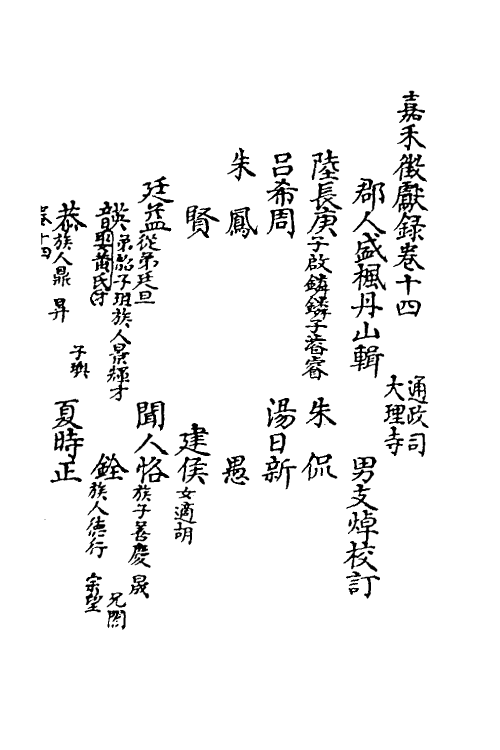 嘉禾徵獻錄卷十四
通政司
大理寺
郡人盛楓丹山輯 男支焯校訂
陸長庚子啟鏻鏻子蓄睿 朱侃
呂希周 湯日新
朱鳳 愚
賢 建侯女適胡
廷益從弟廷旦 聞人恪族子善慶 晟 兄閎
韺弟韶子珇族人景輝才
音娶黃氏 銓族人德行 宗望
恭族人鼎 昇 子璵 夏時正
卷十四